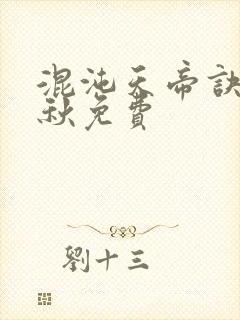 混沌天帝訣
秋免費
劉十三